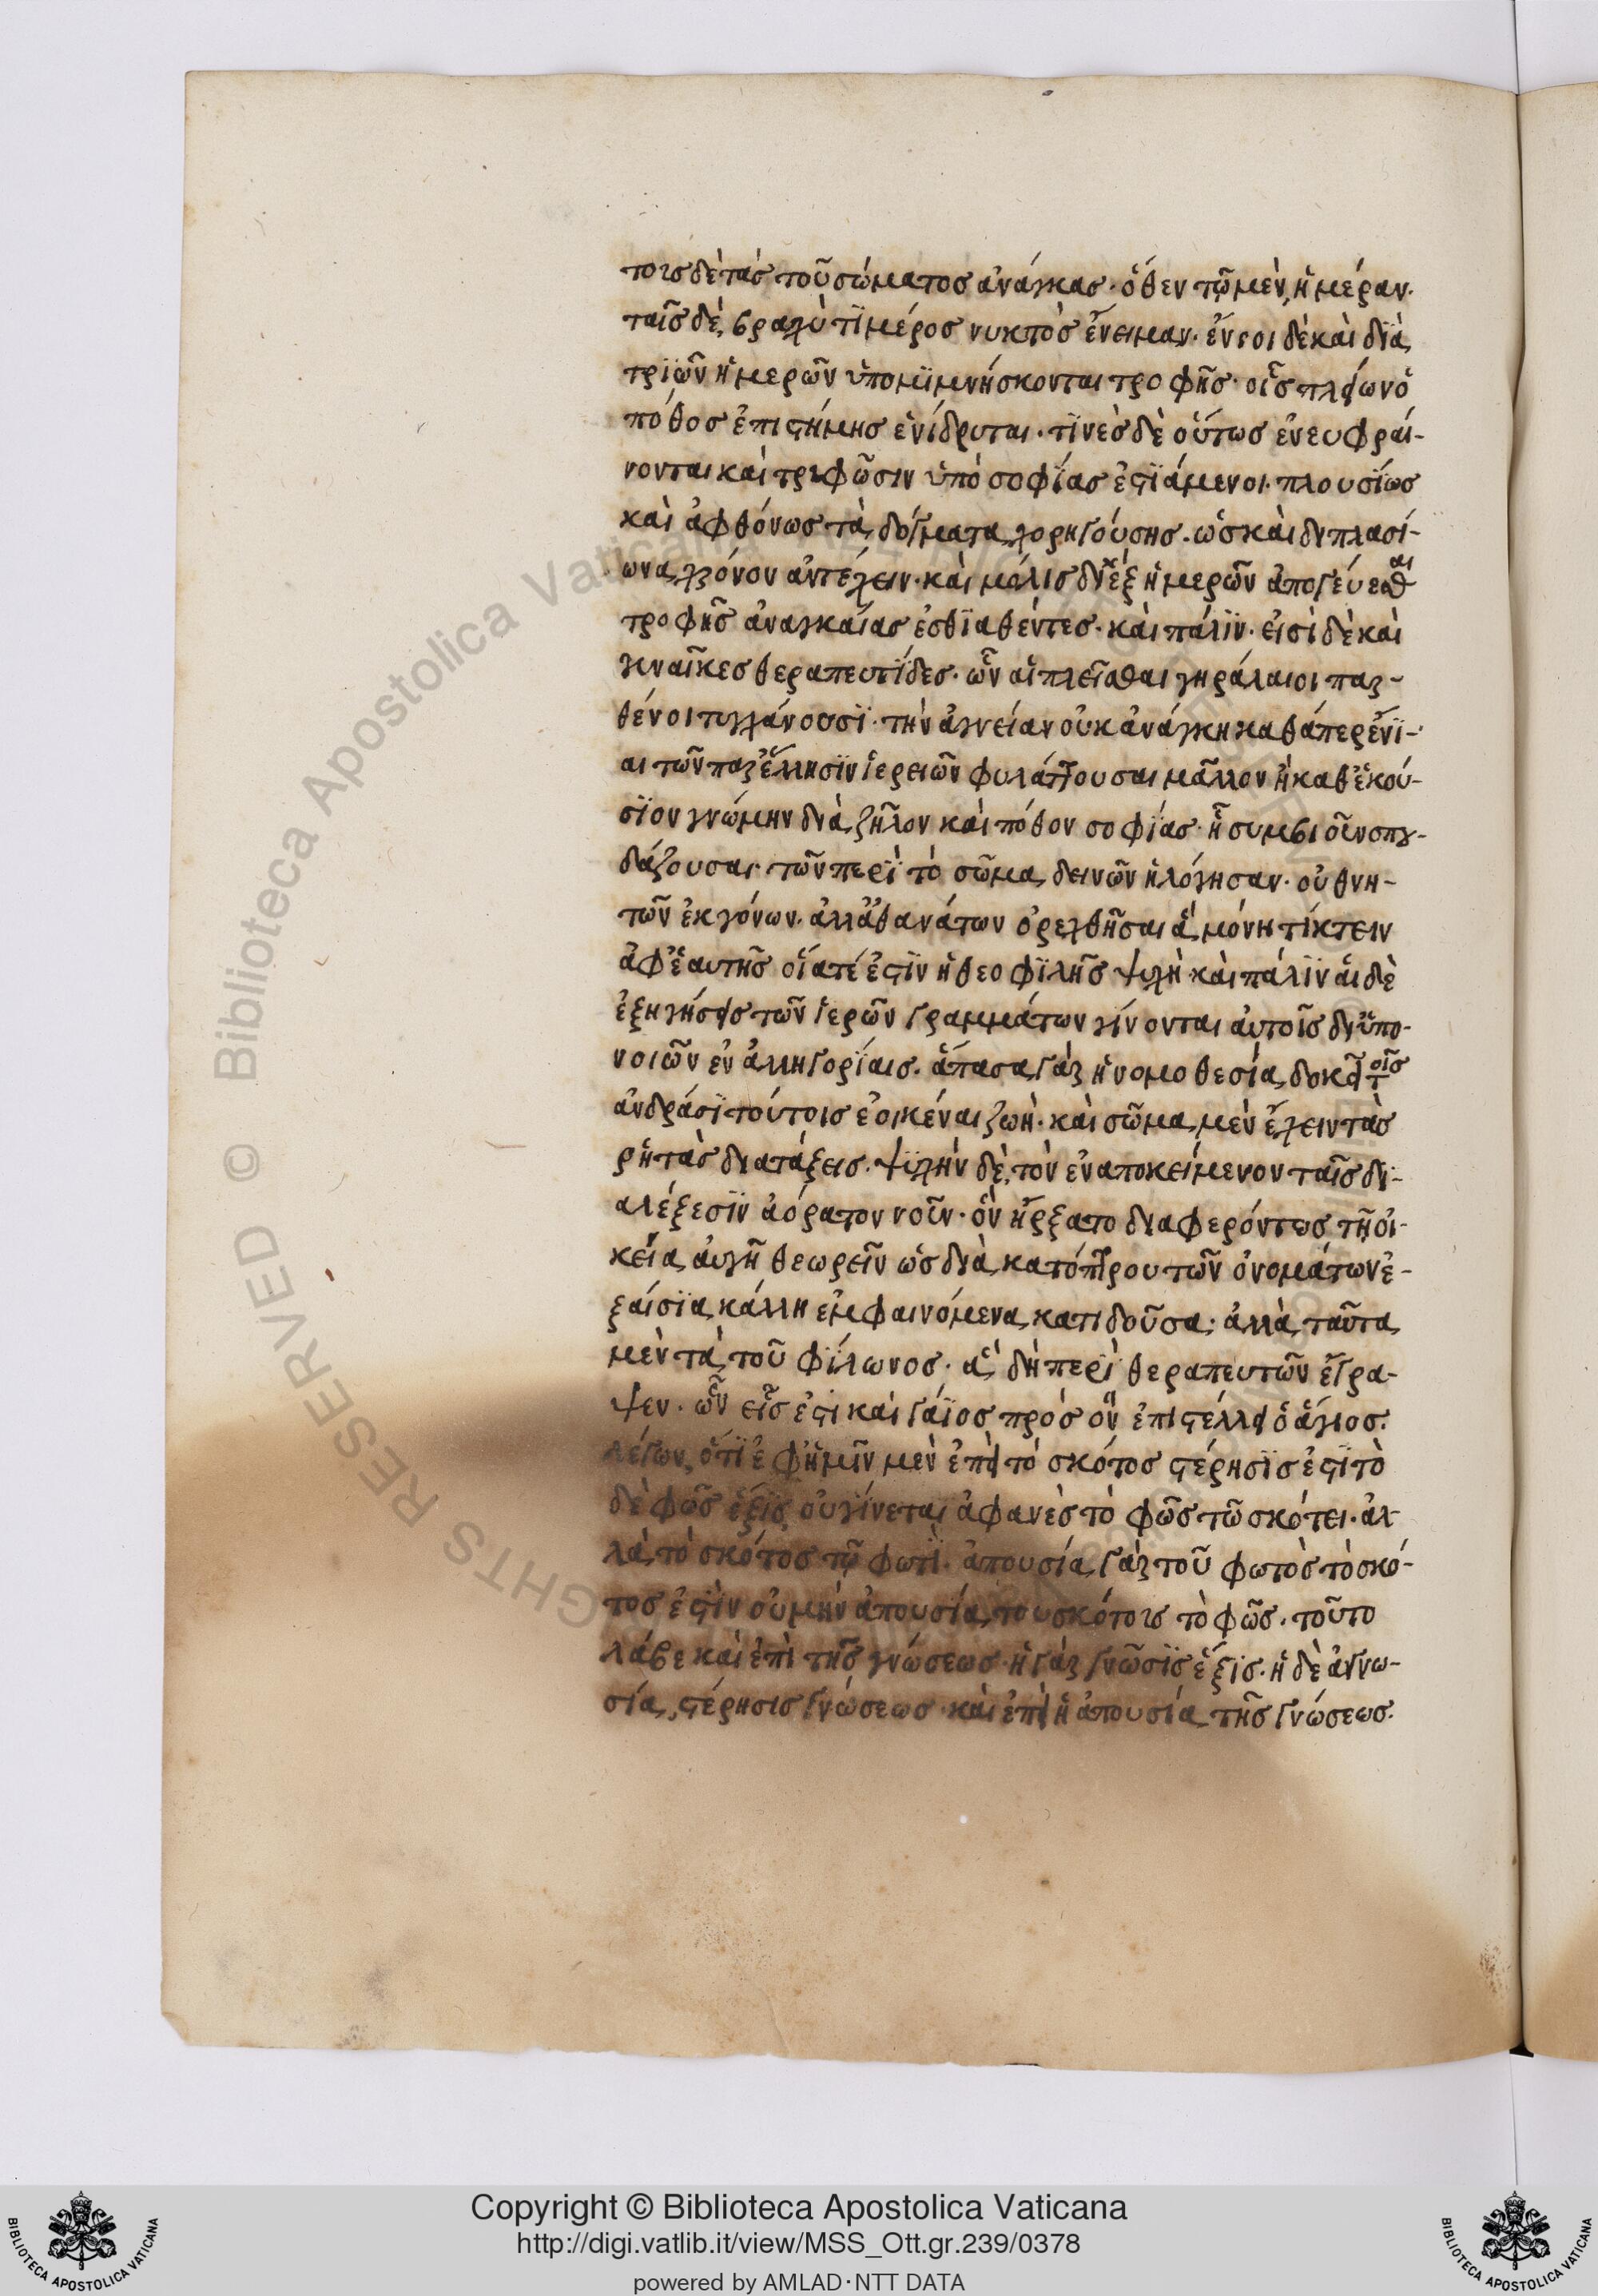 τοις δὲ τὰς τοῦ σώματος ἀνάγκας· ὅθεν τῷ μὲν, ἡμέραν·
ταῖς δὲ, βραχύ τϊ μέρος νυκτὸς ἔνειμαν· ἔνιοι δὲ καὶ διὰ
τρϊῶν ἡμερῶν ὑπομϊμνήσκονται τροφῆς· οἷς πλείων ὁ
πόθος ἐπιστήμης ἐνίδρυται· τϊνὲς δὲ οὕτως ἐνευφραί-
νονται καὶ τρυφῶσιν ὑπὸ σοφίας ἑστϊάμενοι· πλουσίως
καὶ ἀφθόνως τὰ δόγματα χορηγούσης· ὡς καὶ διπλασί-
ωνα χρόνον ἀντέχειν· καὶ μόλις δι' ἓξ ἡμερῶν ἀπογεύεσθαι
τροφῆς ἀναγκαίας ἐσθϊαθέντες· καὶ πάλϊν· εἰσὶ δὲ καὶ
γυναῖκες θεραπευτίδες· ὧν αἱ πλεῖσθαι γηράλαιοι παρ-
θένοι τυγχάνουσϊ· τὴν ἁγνείαν οὐκ ἀνάγκη καθάπερ ἔνϊ-
αι τῶν παρ' ἕλλησϊν ἱερειῶν φυλάττουσαι μᾶλλον ἢ καθ' ἑκού-
σϊον γνώμην διὰ ζῆλον καὶ πόθον σοφίας· ᾗ συμβιοῦν σπου-
δάζουσαι· τῶν περὶ τὸ σῶμα δεινῶν ἠλόγησαν· οὐ θνη-
τῶν ἐκγόνων· ἀλλ' ἀθανάτων ὀρεχθῆσαι ἃ μόνη τίκτειν
ἀφ' ἑαυτῆς οἵα τέ ἐστϊν ἡ θεοφϊλῆς ψυχὴ· καὶ πάλϊν αἱ δὲ
ἐξηγήσεις τῶν ἱερῶν γραμμάτων γίνονται αὐτοῖς δι' ὑπο-
νοιῶν ἐν ἀλληγορίαις· ἅπασα γὰρ ἡ νομοθεσία δοκεῖ τοῖς
ἀνδράσϊ τούτοις ἐοικέναι ζωὴ· καὶ σῶμα μὲν ἔχειν τὰς
ῥητὰς διατάξεις· ψϋχὴν δὲ, τὸν ἐναποκείμενον ταῖς δι-
αλέξεσϊν ἀόρατον νοῦν· ὃν ἤρξατο διαφερόντως τῇ οἰ-
κεία αὐγῆ θεωρεῖν ὡς διὰ κατόπτρου τῶν ὀνομάτων ἐ-
ξαίσϊα κάλλη ἐμφαινόμενα κατιδοῦσα· ἀλλὰ ταῦτα
μὲν τὰ τοῦ φίλωνος· ἃ δὴ περὶ θεραπευτῶν ἔγρα-
ψεν· ὧν εἷς ἐστι καὶ γάϊος πρὸς ὃν ἐπιστέλλει ὁ ἅγιος·
λέγων, ὅτϊ ἐφ' ἡμῖν μὲν ἐπεὶ τὸ σκότος στέρησϊς ἐστϊ τὸ
δὲ φῶς ἕξϊς, οὐ γίνεται ἀφανὲς τὸ φῶς τῶ σκότει· ἀλ-
λὰ τὸ σκότος τῷ φωτϊ· ἀπουσία γὰρ τοῦ φωτὸς τὸ σκό-
τος ἐστὶν οὐ μὴν ἀπουσία του σκότοις τὸ φῶς· τοῦτο
λάβε καὶ ἐπὶ τῆς γνώσεως· ἡ γὰρ γνῶσϊς ἕξϊς· ἡ δὲ ἀγνω-
σία, στέρησις γνώσεως· καὶ ἐπεὶ ἡ ἀπουσία τῆς γνώσεως·
Copyright © Biblioteca Apostolica Vaticana
http://digi.vatlib.it/view/MSS_Ott.gr.239/0378
powered by AMLAD·NTT DATA